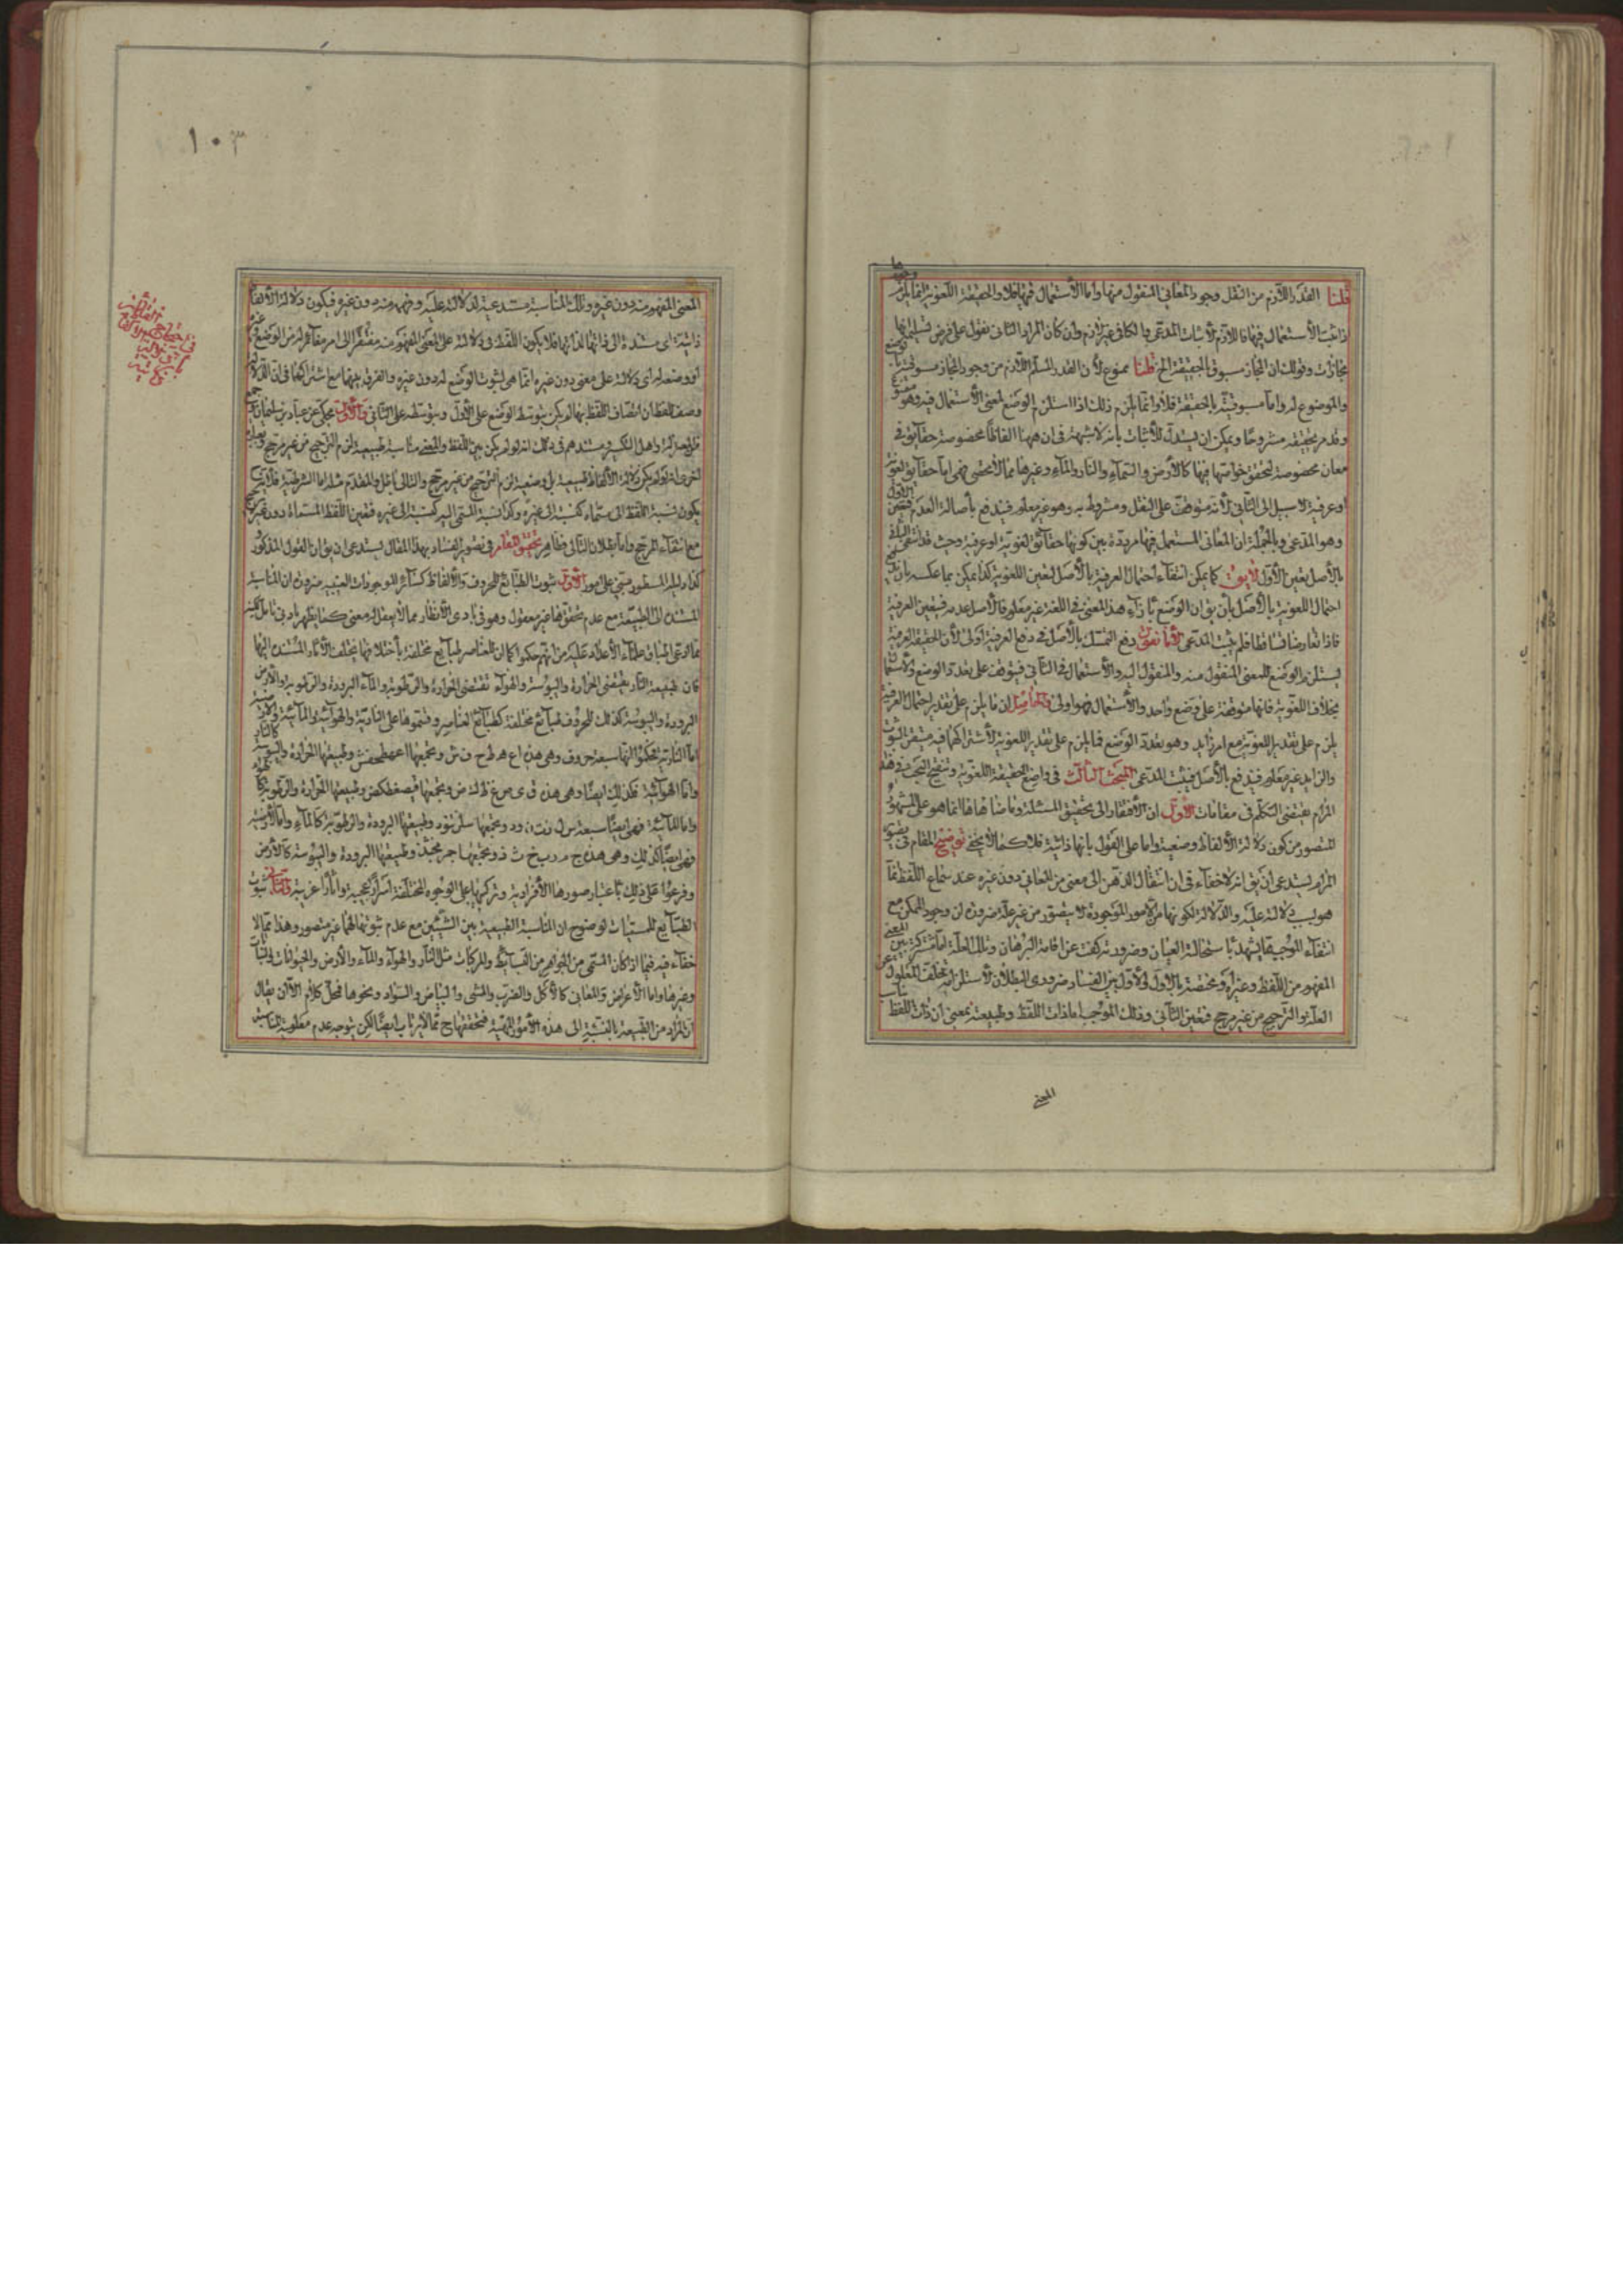 قلنا القدر اللازم من النقل وجود المعاني المنقول منها واما الأستعمال فيها فلا والحقيقة اللغوية انما يلزم
وجودها
اذا ثبت الأستعمال فيها فاللازم لأثبات المدعى والكافى غير لازم وان كان المراد الثانى نقول على فرض تسليم انها
مجازات وقولك ان المجاز مسبوق بالحقيقة الخ قلنا ممنوع لأن القدر المسلم اللازم من وجود المجاز مسبوقيته بالوضع
والموضوع له واما مسبوقيته بالحقيقة فلا وانما يلزم ذلك اذا استلزم الوضع لمعنى الأستعمال فيه وهو ممنوع
وقد مر تحقيقه مشروحًا ويمكن ان يستدل للأثبات بأنه لا شبهة فى ان ههنا الفاظًا مخصوصة حقايق فى
معان مخصوصة لتحقق خواصها فيها كالأرض والسماء والنار والماء وغيرها مما لا تحصى فهى اما حقايق لغوية
او عرفية لا سبيل الى الثاني لأنه متوقف على النقل ومشروط به وهو غير معلوم فيندفع بأصالة العدم فتعين الأول
وهو المدعى وبالجملة ان المعانى المستعمل فيها مرددة بين كونها حقايق لغوية او عرفية وحيث قد انتفى الثاني
بالأصل يعين الأول لايق كما يمكن انتفاء احتمال العرفية بالأصل لتعين اللغوية كذا يمكن بما عكسه بان
احتمال اللغوية بالأصل بأن يق ان الوضع بازاء هذا المعنى فى اللغة غير معلوم فالأصل عدمه فيتعين العرفية
فاذا تعارضا تساقطا فلم يثبت المدعى لأنا نقول دفع التمسك بالأصل فى دفع العرفية اولى لأن الحقيقة العرفية
تستلزم الوضع للمعنى المنقول منه والمنقول اليه والأستعمال فى الثانى فيتوقف على تعدد الوضع والأستعمال
بخلاف اللغوية فانها متوقفة على وضع واحد والأستعمال فهو اولى والحاصل ان ما يلزم على تقدير احتمال العرفية
يلزم على تقدير اللغوية مع امر زايد وهو تعدد الوضع فما يلزم على تقدير اللغوية لأشتراكهما فيه متيقن الثبوت
والزايد غير معلوم فيندفع بالأصل فيثبت المدعى المبحث الثالث فى واضع الحقيقة اللغوية وتنقيح البحث وتوضيح
المرام يقتضى التكلم فى مقامات الأول ان الأفتقار الى تحقيق المسئلة وما ضاهاها انما هو على المشهور
المتصور من كون دلالة الألفاظ وضعية واما على القول بانها ذاتية فلا كما لا يخفى توضيح المقام فى تصوير
المرام يستدعى ان يق انه لا خفاء فى ان انتقال الذهن الى معنى من المعاني دون غيره عند سماع اللفظ انما
هو لسبب دلالة عليه والدلالة لكونها من الأمور الموجودة لا يتصور من غير علة ضرورة ان وجود الممكن مع
انتفاء الموجب مما يشهد باستحالة العيان وضرورته كفت عن اقامة البرهان وتلك العلة اما مشتركة بين المعنى
المفهوم من اللفظ وغيره او مختصة بالأول والأول بين الفساد ضرورى البطلان لأستلزامه تخلف المعلول عن
العلة والترجيح من غير مرجح فتعين الثاني وذلك الموجب اما ذات اللفظ وطبيعته بمعنى ان ذات اللفظ تناسب
المعنى
١٠٣
المعنى المفهوم منه دون غيره وتلك المناسبة مستدعية لدلالته عليه وفهمه منه دون غيره فيكون دلالة الألفاظ
ذاتية اى مستندة الى ذاتها لذاتها فلا يكون اللفظ فى دلالته على المعنى المفهوم منه مفتقرًا الى امر مغاير له من الوضع وغيره
او وضعه له اى دلالته على معنى دون غيره انما هى لثبوت الوضع له دون غيره والفرق بينهما مع اشتراكهما فى ان الدلالة
وصف للفظ ان اتصاف اللفظ بها لم يكن بتوسط الوضع على الأول وبتوسطه على الثانى والأول محكى عن عباد بن سليمان
من المعتزلة واهل التكسير ومستندهم فى ذلك انه لو لم يكن بين اللفظ والمعنى مناسبة طبيعية لزم الترجيح من غير مرجح وبعبارة
اخرى انه لو لم يكن دلالة الألفاظ طبيعية بل وضعية لزم الترجيح من غير مرجح والتالى باطل والمقدم مثله اما الشرطية فلأنه
يكون نسبة اللفظ الى مسماه كنسبته الى غيره وكذا نسبة المسمى اليه كنسبته الى غيره فتعين اللفظ لمسماه دون غيره
مع انتفاء المرجح واما بطلان التالى فظاهر تحقيق المقام فى تصوير الفساد بهذا المقال يستدعى ان يق ان القول المذكور
كذا دليله المسطور مبني على امور الأول ثبوت الطبايع للحروف والألفاظ كسائر الموجودات العينية ضرورة ان المناسبة
المستندة الى الطبيعة مع عدم تحققها غير معقول وهو فى بادى الأنظار مما لا يعقل له معنى كما يظهر بادنى تأمل لكنه
مما ادعى علماء الأعداد عليه من انهم حكموا كما ان للعناصر طبايع مختلفة بأختلافها يختلف الآثار المستندة اليها
فان طبيعة النار تقتضى الحرارة واليبوسة والهواء تقتضى الحرارة والرطوبة والماء البرودة والرطوبة والأرض
البرودة واليبوسة كذلك للحروف طبايع مختلفة كطبايع العناصر وقسموها على النارية والهوائية والمائية والأرضية
اما النارية فحكموا انها سبعة حروف وهى هذه ا ع ه ط ح ف ش ومجمعها اعهطحفش وطبيعتها الحرارة واليبوسة كالنار
واما الهوائية فكذلك ايضًا وهى هذه ق ى ص غ ظ ك ض ومجمعها قيصغظكض وطبيعتها الحرارة والرطوبة كالهواء
واما المائية فهى ايضًا سبعة س ل ن ت و د ومجمعها وطبيعتها البرودة والرطوبة كالماء واما الأرضية
فهى ايضًا كذلك وهى هذه ج م ر ب خ ث ذ ومجمعها وطبيعتها البرودة واليبوسة كالأرض
وفرعوا على ذلك باعتبار صورها الأفرادية وتركبها على الوجوه المختلفة اسرارًا عجيبة واثارًا غريبة والثانى ثبوت
الطبايع للمسميات لوضوح ان المناسبة الطبيعية بين الشيئين مع عدم ثبوتها لهما غير متصور وهذا مما لا
خفاء فيه فيما اذا كان المسمى من الجواهر من البسايط والمركبات مثل النار والهواء والماء والأرض والحيوانات والنباتات
وغيرها واما الأعراض والمعانى كالأكل والضرب والمشى والبياض والسواد ونحوها فمحل كلام الا ان يقال
ان المراد من الطبيعة بالنسبة الى هذه الأمور المهية فتحققها ح مما لا يرتاب ايضًا لكن يتوجه عدم معلومية المناسبة